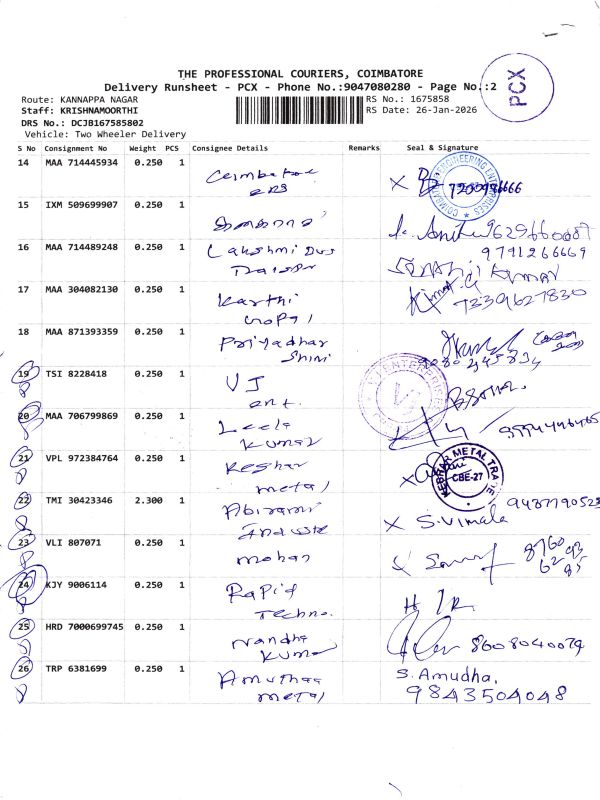 PCX
THE PROFESSIONAL COURIERS, COIMBATORE
Delivery Runsheet - PCX - Phone No.:9047080280 - Page No.:2
Route: KANNAPPA NAGAR
RS No.: 1675858
Staff: KRISHNAMOORTHI
RS Date: 26-Jan-2026
DRS No.: DCJB167585802
Vehicle: Two Wheeler Delivery
S No Consignment No Weight PCS Consignee Details Remarks Seal & Signature
14 MAA 714445934 0.250 1 Coimbatore
7200996666
15 IXM 509699907 0.250 1
9629660087
16 MAA 714489248 0.250 1 Lakshmi Dus
9791266669
17 MAA 304082130 0.250 1 Karthi
Gopal
7339627830
18 MAA 871393359 0.250 1 Priyadhar
Shini
9080245834
19 TSI 8228418 0.250 1 VJ
ent.
VJ ENTERPRISES
20 MAA 706799869 0.250 1 Leela
Kumar
21 VPL 972384764 0.250 1 Keshar
metal
KESHAR METAL TRADE
CBE-27
22 TMI 30423346 2.300 1 Abirami
X S.Vimala
23 VLI 807071 0.250 1 mohan
24 KJY 9006114 0.250 1 Rapid
Techno.
25 HRD 7000699745 0.250 1 Nandha
Kumar
8608040079
26 TRP 6381699 0.250 1 Amuthaa
metal
S. Amudha,
9843504048